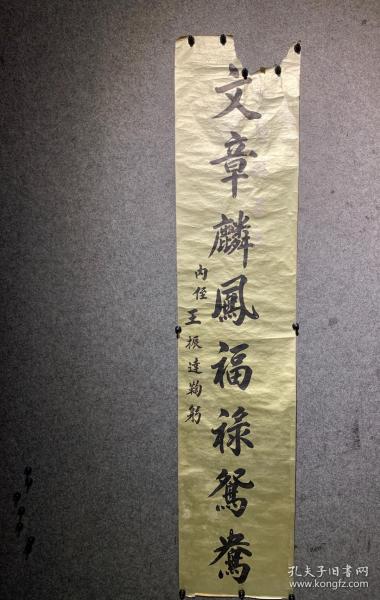 文章麟鳳福祿鴛鴦
内侄王振達鞠躬
孔夫子旧书网
www.kongfz.com